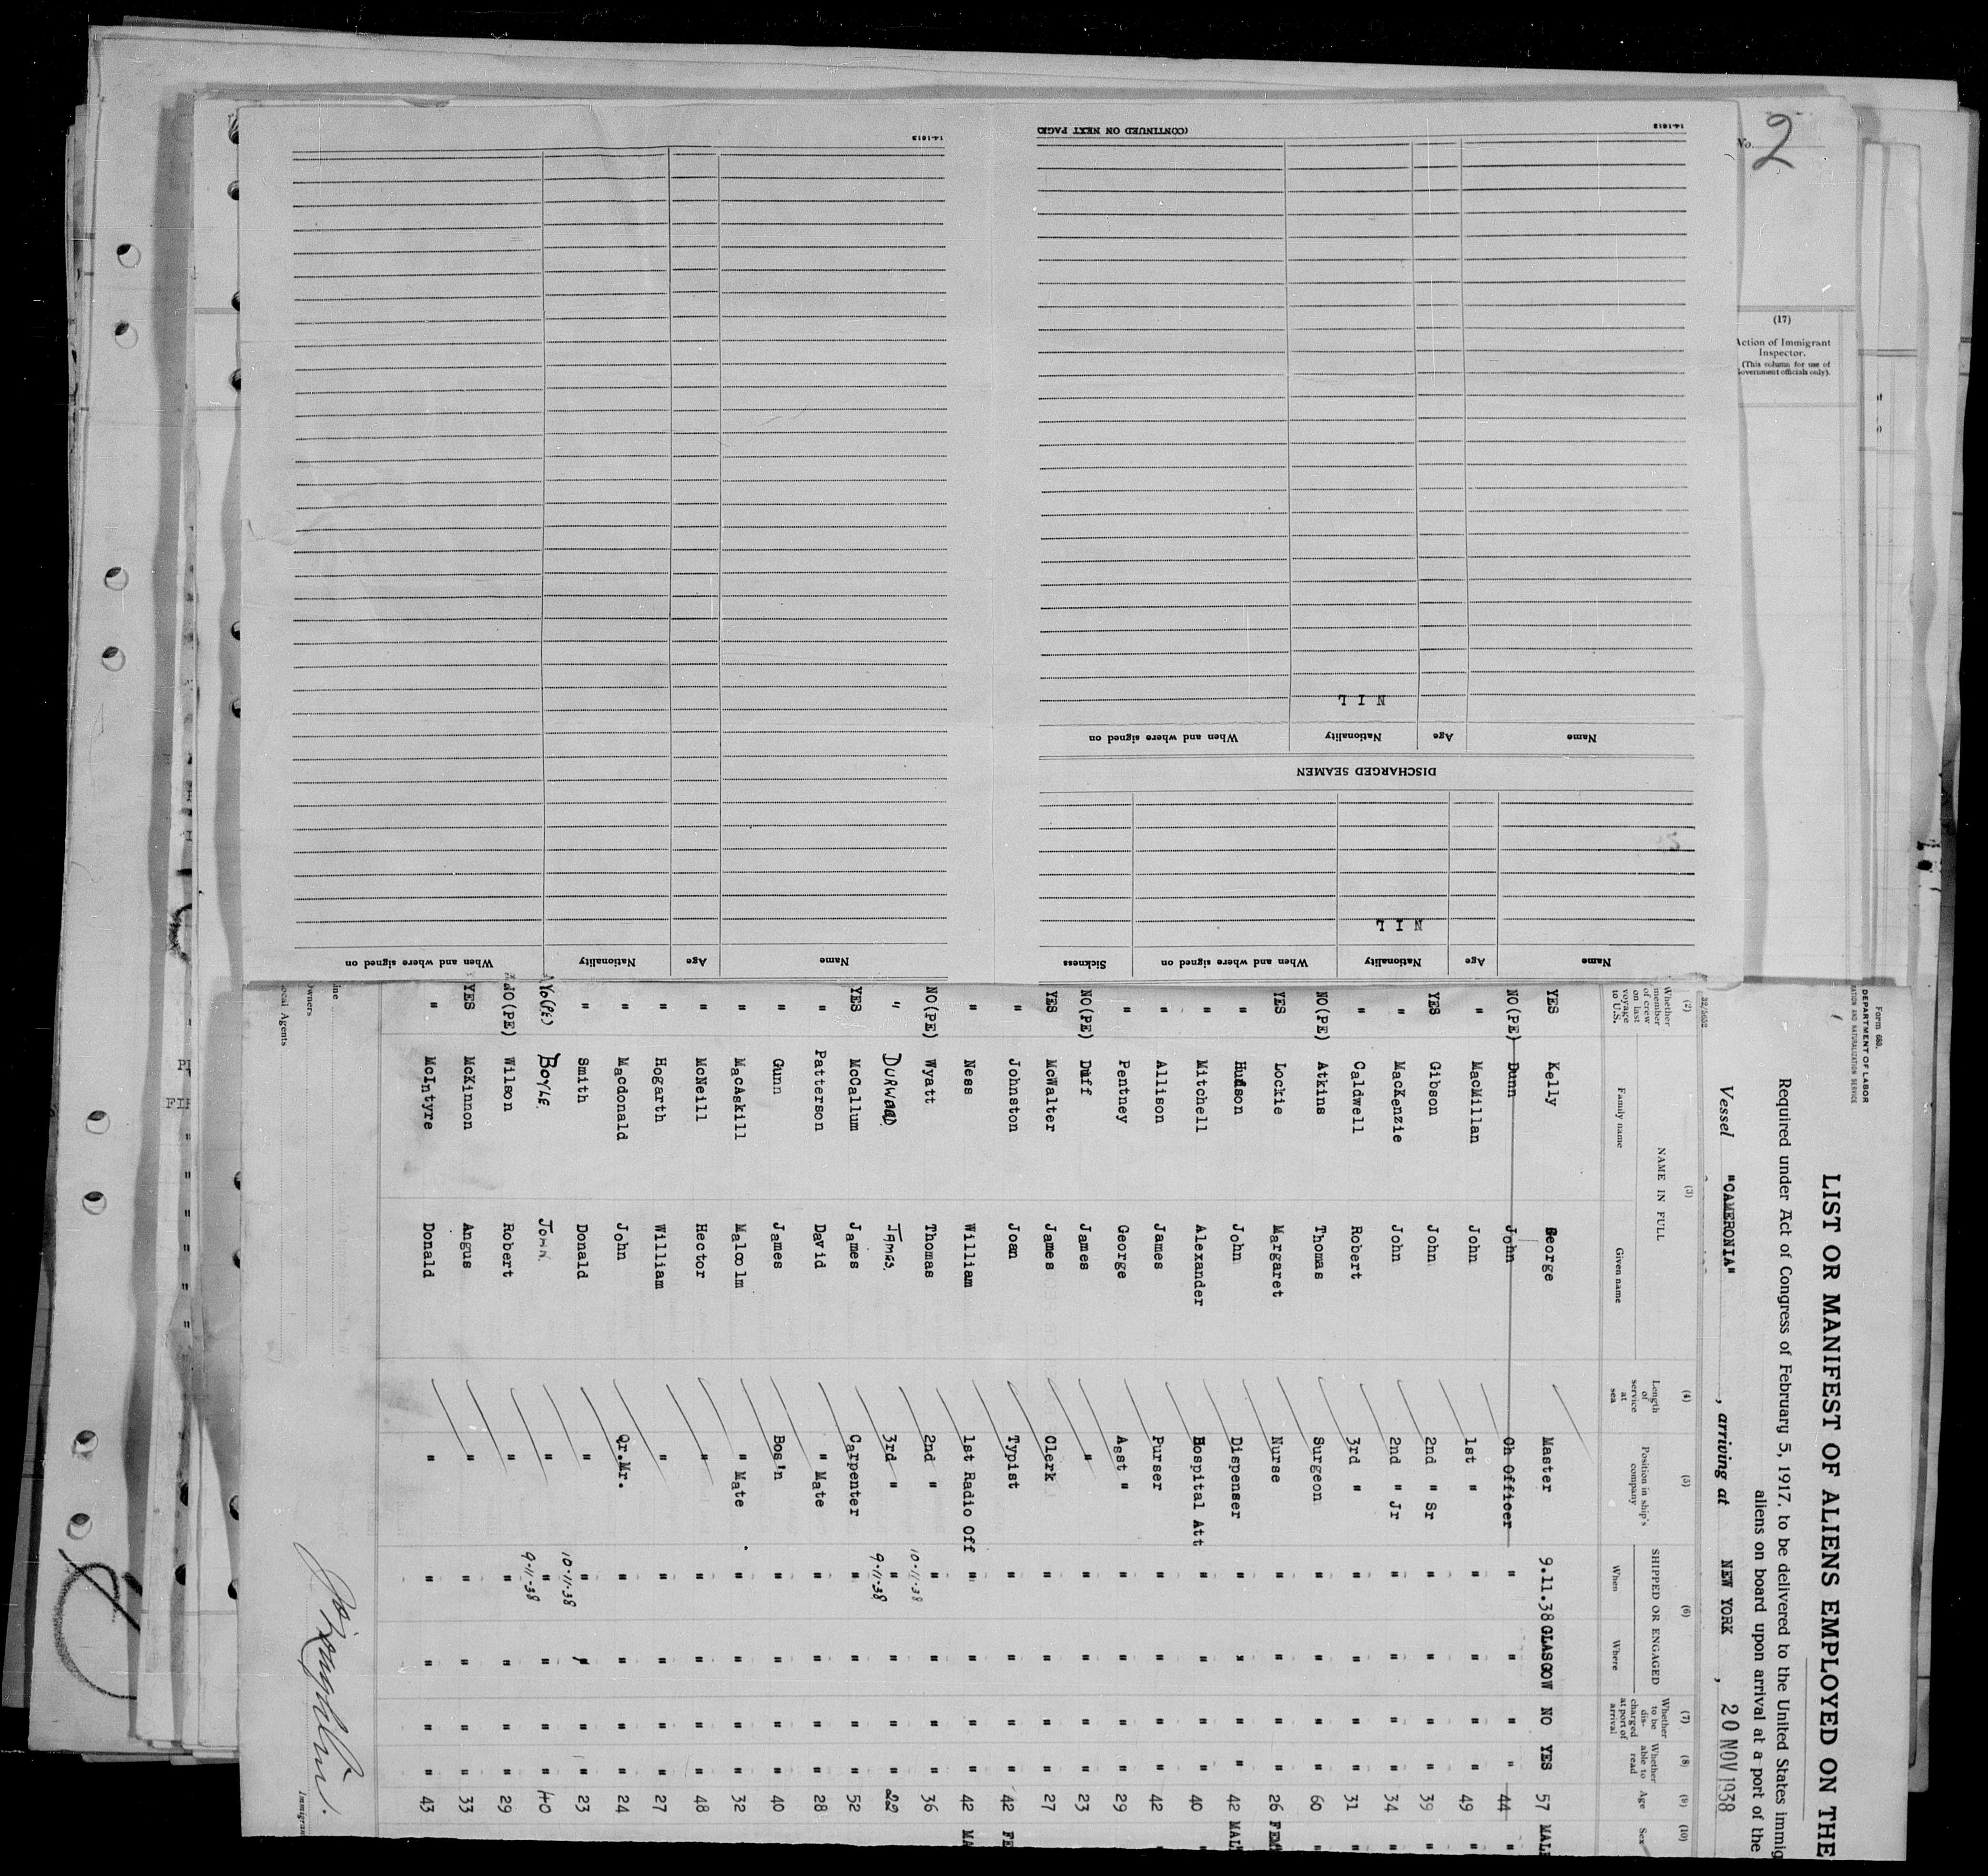 No. 2
(17)
Action of Immigrant
Inspector.
(This column for use of
Government officials only).
14-1613
14-1613
(CONTINUED ON NEXT PAGE)
Name Age Nationality When and where signed on Sickness
N I L
DISCHARGED SEAMEN
Name Age Nationality When and where signed on
N I L
Name Age Nationality When and where signed on
Form 680.
DEPARTMENT OF LABOR
IMMIGRATION AND NATURALIZATION SERVICE
LIST OR MANIFEST OF ALIENS EMPLOYED ON THE
Required under Act of Congress of February 5, 1917, to be delivered to the United States immig
aliens on board upon arrival at a port of the
Vessel "CAMERONIA" , arriving at NEW YORK , 20 NOV 1938
(2) (3) (4) (5) (6) (7) (8) (9) (10)
Whether member of crew on last voyage to U.S. NAME IN FULL Family name Given name Length of service at sea Position in ship's company SHIPPED OR ENGAGED When Where Whether to be discharged at port of arrival Whether able to read Age Sex
YES Kelly George Master 9.11.38 GLASGOW NO YES 57 MALE
NO(PE) Dunn John Ch Officer " " " " 44 "
" MacMillan John 1st " " " " " 49 "
YES Gibson John 2nd " Sr " " " " 39 "
" MacKenzie John 2nd " Jr " " " " 34 "
" Caldwell Robert 3rd " " " " " 31 "
NO(PE) Atkins Thomas Surgeon " " " " 60 "
YES Lockie Margaret Nurse " " " " 26 FEM
" Hudson John Dispenser " " " " 42 MAL
" Mitchell Alexander Hospital Att " " " " 40 "
" Allison James Purser " " " " 42 "
" Pentney George Asst " " " " " 29
NO(PE) Duff James " " " " " 23
YES McWalter James Clerk " " " " 27
" Johnston Joan Typist " " " " 42 FE
" Ness William 1st Radio Off " " " " 42 MA
NO(PE) Wyatt Thomas 2nd " 10-11-38 " " " " 36
" DURWARD JAMES. 3rd " 9-11-38 " " " " 22
YES McCallum James Carpenter " " " " 52
" Patterson David " Mate " " " " 28
" Gunn James Bos'n " " " " 40
" MacAskill Malcolm " Mate " " " " 32
" McNeill Hector " " " " " 48
" Hogarth William " " " " " 27
" Macdonald John Qr.Mr. " " " " 24
" Smith Donald " " " " " 23
NO(PE) BOYLE JOHN. " 10-11-38 " " " " 40
NO(PE) Wilson Robert " 9-11-38 " " " " 29
YES McKinnon Angus " " " " " 33
" McIntyre Donald " " " " " 43
Line
Owners
Local Agents
Immigran